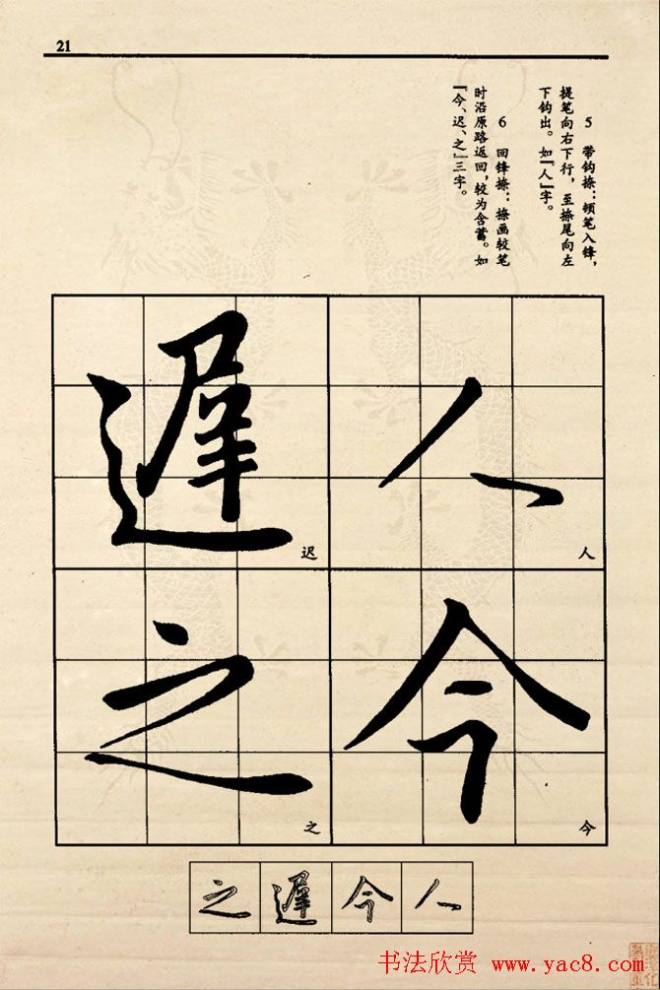 21
5 带钩捺：顿笔入锋，
提笔向右下行，至捺尾向左
下钩出。如『人』字。
6 回锋捺：捺画较笔
时沿原路返回，较为含蓄。如
『今、迟、之』三字。
人
人
今
今
遲
迟
之
之
之遲今人
书法欣赏 www.yac8.com